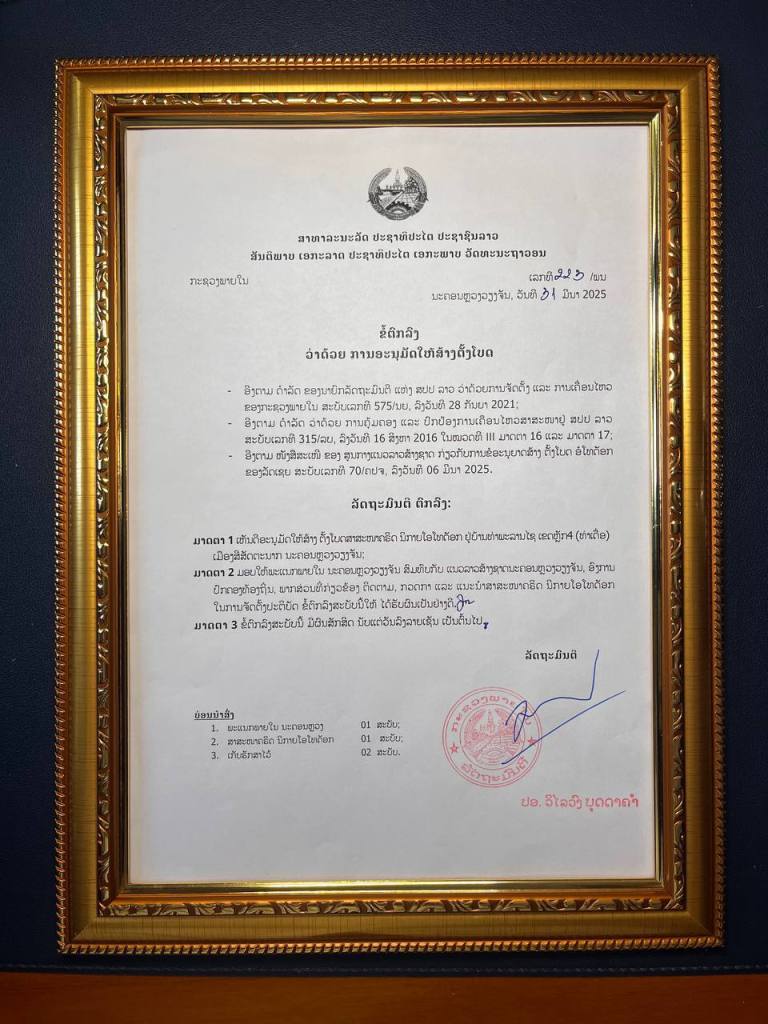 ສາທາລະນະລັດ ປະຊາທິປະໄຕ ປະຊາຊົນລາວ
ສັນຕິພາບ ເອກະລາດ ປະຊາທິປະໄຕ ເອກະພາບ ວັດທະນະຖາວອນ
ກະຊວງພາຍໃນ
ເລກທີ 223 /ພນ
ນະຄອນຫຼວງວຽງຈັນ, ວັນທີ 31 ມີນາ 2025
ຂໍ້ຕົກລົງ
ວ່າດ້ວຍ ການອະນຸມັດໃຫ້ສ້າງຕັ້ງໂບດ
- ອີງຕາມ ດຳລັດ ຂອງນາຍົກລັດຖະມົນຕີ ແຫ່ງ ສປປ ລາວ ວ່າດ້ວຍການຈັດຕັ້ງ ແລະ ການເຄື່ອນໄຫວ
ຂອງກະຊວງພາຍໃນ ສະບັບເລກທີ 575/ນຍ, ລົງວັນທີ 28 ກັນຍາ 2021;
- ອີງຕາມ ດຳລັດ ວ່າດ້ວຍ ການຄຸ້ມຄອງ ແລະ ປົກປ້ອງການເຄື່ອນໄຫວສາສະໜາຢູ່ ສປປ ລາວ
ສະບັບເລກທີ 315/ລບ, ລົງວັນທີ 16 ສິງຫາ 2016 ໃນໝວດທີ III ມາດຕາ 16 ແລະ ມາດຕາ 17;
- ອີງຕາມ ໜັງສືສະເໜີ ຂອງ ສູນກາງແນວລາວສ້າງຊາດ ກ່ຽວກັບການຂໍອະນຸຍາດສ້າງ ຕັ້ງໂບດ ອໍໂທດັອກ
ຂອງລັດເຊຍ ສະບັບເລກທີ 70/ຄປຈ, ລົງວັນທີ 06 ມີນາ 2025.
ລັດຖະມົນຕີ ຕົກລົງ:
ມາດຕາ 1 ເຫັນດີອະນຸມັດໃຫ້ສ້າງ ຕັ້ງໂບດສາສະໜາຄຣິດ ນິກາຍໂອໂທດັອກ ຢູ່ບ້ານທ່າພະລານໄຊ ເຂດຫຼັກ4 (ທ່າເດື່ອ)
ເມືອງສີສັດຕະນາກ ນະຄອນຫຼວງວຽງຈັນ;
ມາດຕາ 2 ມອບໃຫ້ພະແນກພາຍໃນ ນະຄອນຫຼວງວຽງຈັນ ສົມທົບກັບ ແນວລາວສ້າງຊາດນະຄອນຫຼວງວຽງຈັນ, ອົງການ
ປົກຄອງທ້ອງຖິ່ນ, ພາກສ່ວນທີ່ກ່ຽວຂ້ອງ ຕິດຕາມ, ກວດກາ ແລະ ແນະນຳສາສະໜາຄຣິດ ນິກາຍໂອໂທດັອກ
ໃນການຈັດຕັ້ງປະຕິບັດ ຂໍ້ຕົກລົງສະບັບນີ້ໃຫ້ ໄດ້ຮັບຜົນເປັນຢ່າງດີ.
ມາດຕາ 3 ຂໍ້ຕົກລົງສະບັບນີ້ ມີຜົນສັກສິດ ນັບແຕ່ວັນລົງລາຍເຊັນ ເປັນຕົ້ນໄປ.
ລັດຖະມົນຕີ
ບ່ອນນຳສົ່ງ
1. ພະແນກພາຍໃນ ນະຄອນຫຼວງ 01 ສະບັບ;
2. ສາສະໜາຄຣິດ ນິກາຍໂອໂທດັອກ 01 ສະບັບ;
3. ເກັບຮັກສາໄວ້ 02 ສະບັບ.
ກະຊວງພາຍໃນ
ລັດຖະມົນຕີ
ປອ. ວິໄລວົງ ບຸດດາຄຳ